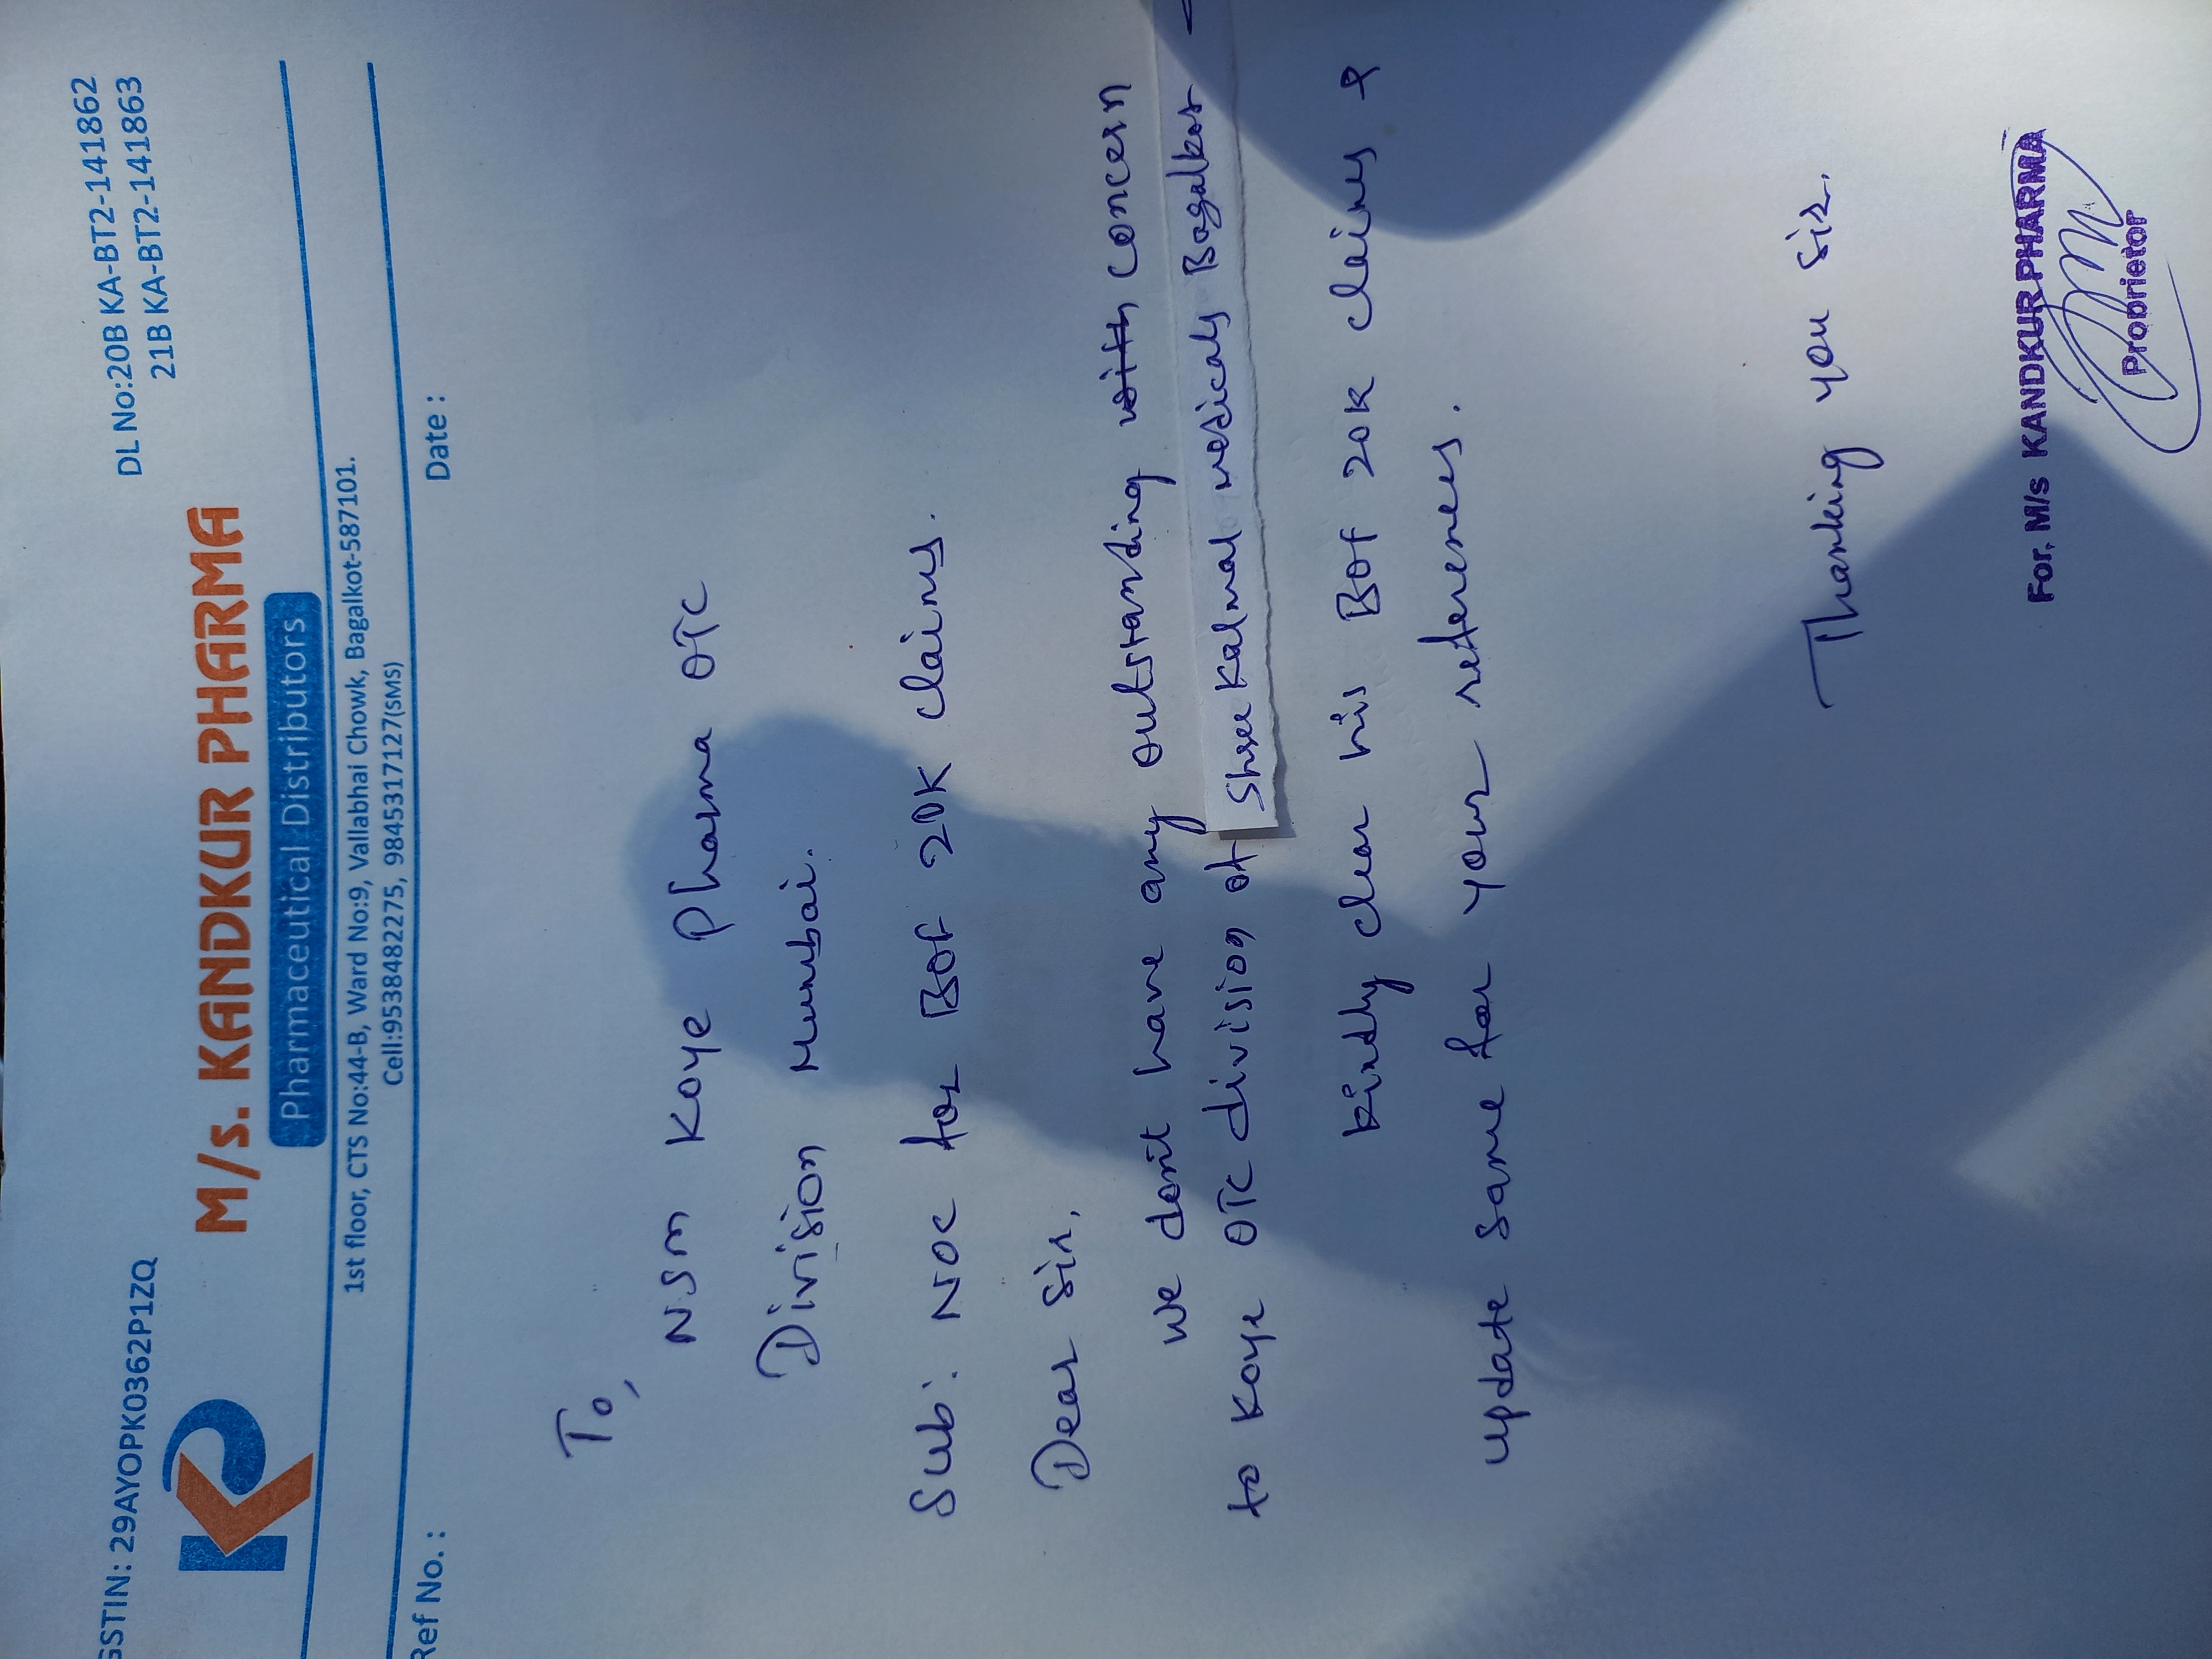 GSTIN: 29AYOPK0362P1ZQ
DL No:20B KA-BT2-141862
21B KA-BT2-141863
M/s. KANDKUR PHARMA
Pharmaceutical Distributors
1st floor, CTS No:44-B, Ward No:9, Vallabhai Chowk, Bagalkot-587101.
Cell:9538482275, 9845317127(SMS)
Ref No. :
Date :
To,
NSM Koye Pharma OTC
Division Mumbai.
Sub: NOC for BOF 20K claims.
Dear Sir,
We don't have any outstanding with concern
to Koye OTC division of Shree Kalmal medicals Bagalkot -
Kindly clear his BOF 20K claims &
update same for your references.
Thanking you sir.
For, M/s KANDKUR PHARMA
Probrietor